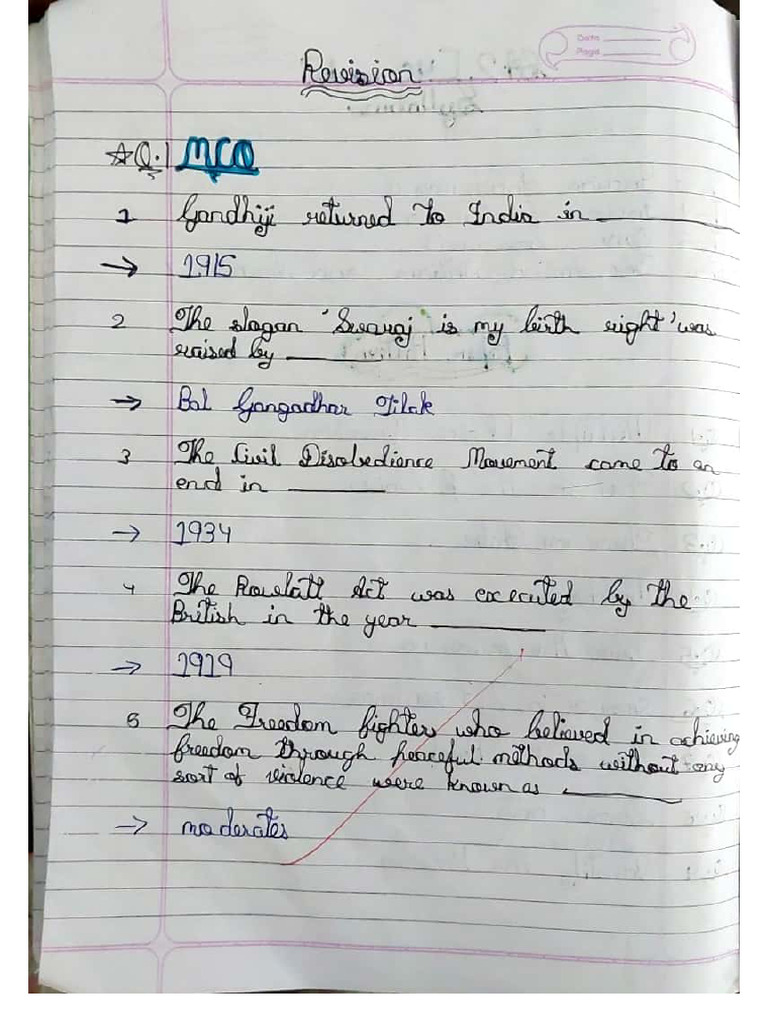 Date
Page
Revision
☆Q.1 MCQ
1 Gandhiji returned to India in ______
→ 1915
2 The slogan 'Swaraj is my birth right' was
raised by ______
→ Bal Gangadhar Tilak
3 The Civil Disobedience Movement came to an
end in ______
→ 1934
4 The Rowlatt Act was executed by the
British in the year ______
→ 1919
5 The Freedom fighters who believed in achieving
freedom through peaceful methods without any
sort of violence were known as ______
→ moderates